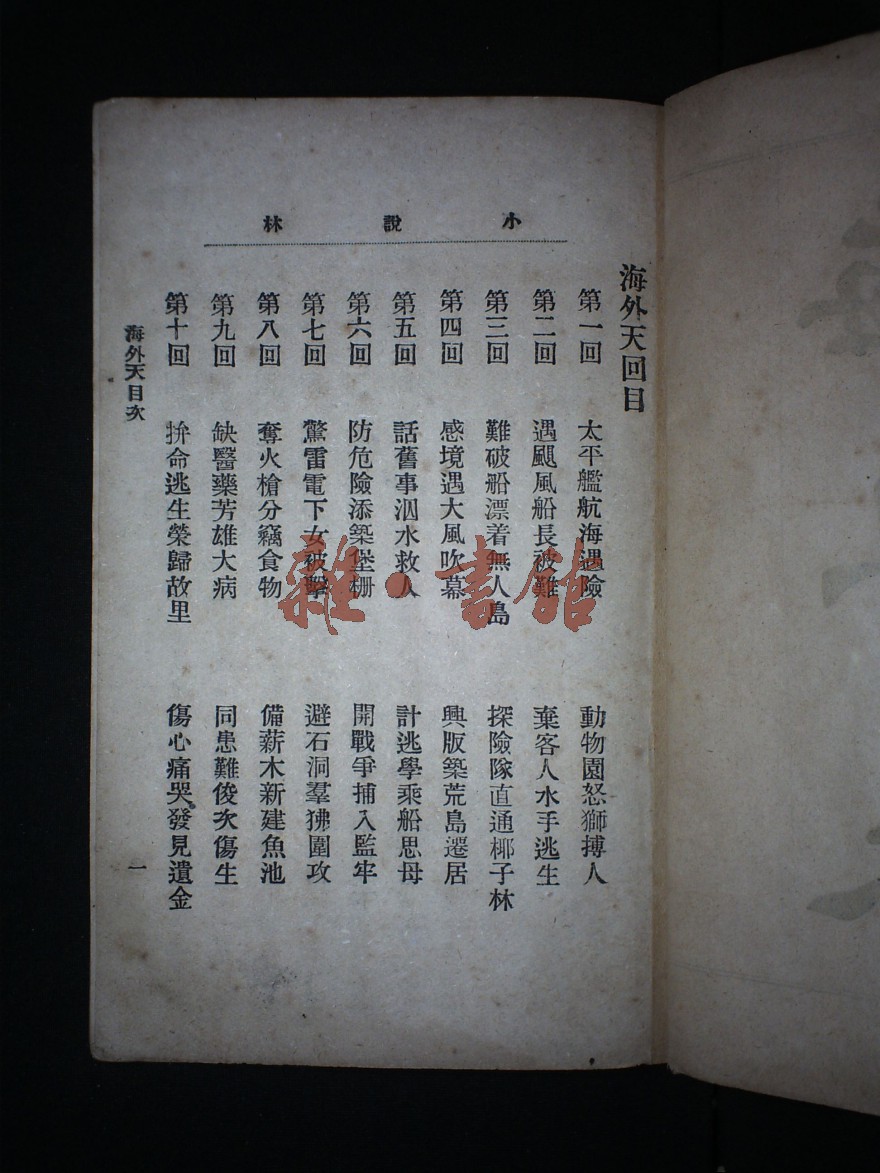 小說林
海外天回目
第一回 太平艦航海遇險 動物園怒獅搏人
第二回 遇颶風船長被難 棄客人水手逃生
第三回 難破船漂着無人島 探險隊直通椰子林
第四回 感境遇大風吹幕 興版築荒島遷居
第五回 話舊事泅水救人 計逃學乘船思母
第六回 防危險添築堡柵 開戰爭捕入監牢
第七回 驚雷電下女被擊 避石洞羣狒圍攻
第八回 奪火槍分竊食物 備薪木新建魚池
第九回 缺醫藥芳雄大病 同患難俊次傷生
第十回 拚命逃生榮歸故里 傷心痛哭發見遺金
海外天目次
一
雜·書館